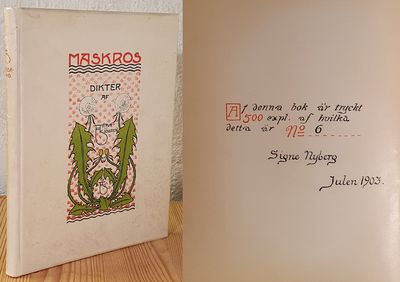 MASKROS
DIKTER
AF
Af denna bok är tryckt
500 expl. af hvilka
detta är No 6
Signe Nyberg
Julen 1903.